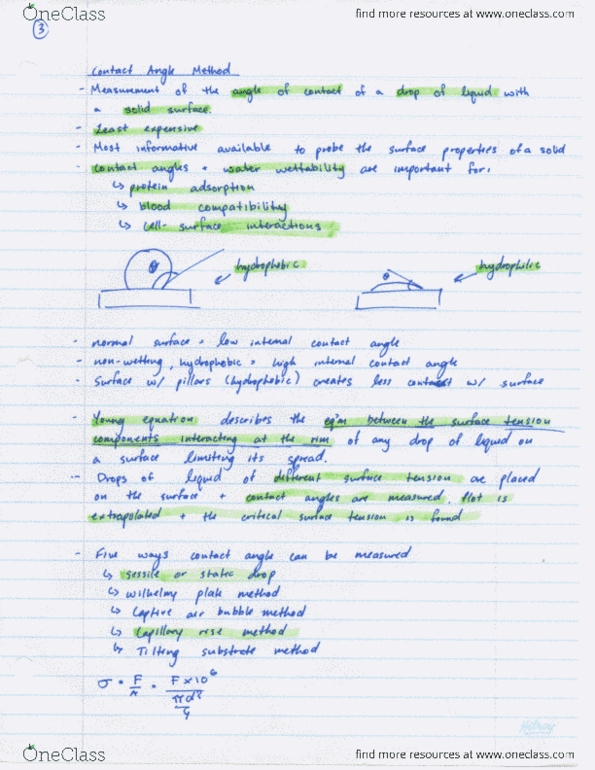 OneClass
find more resources at www.oneclass.com
3
Contact Angle Method
- Measurement of the angle of contact of a drop of liquid with
a solid surface.
- Least expensive
- Most informative available to probe the surface properties of a solid
- Contact angles + water wettability are important for:
↳ protein adsorption
↳ blood compatibility
↳ cell-surface interactions
θ hydrophobic θ hydrophilic
- normal surface = low internal contact angle
- non-wetting, hydrophobic = high internal contact angle
- Surface w/ pillars (hydrophobic) creates less contact w/ surface
- Young equation describes the eq'm between the surface tension
components interacting at the rim of any drop of liquid on
a surface limiting its spread.
- Drops of liquid of different surface tension are placed
on the surface + contact angles are measured. Plot is
extrapolated + the critical surface tension is found
- Five ways contact angle can be measured
↳ sessile or static drop
↳ wilhelmy plate method
↳ Captive air bubble method
↳ Capillary rise method
↳ Tilting substrate method
σ = F/A = F×10⁶ / (πd²/4)
Hilroy
OneClass
find more resources at www.oneclass.com